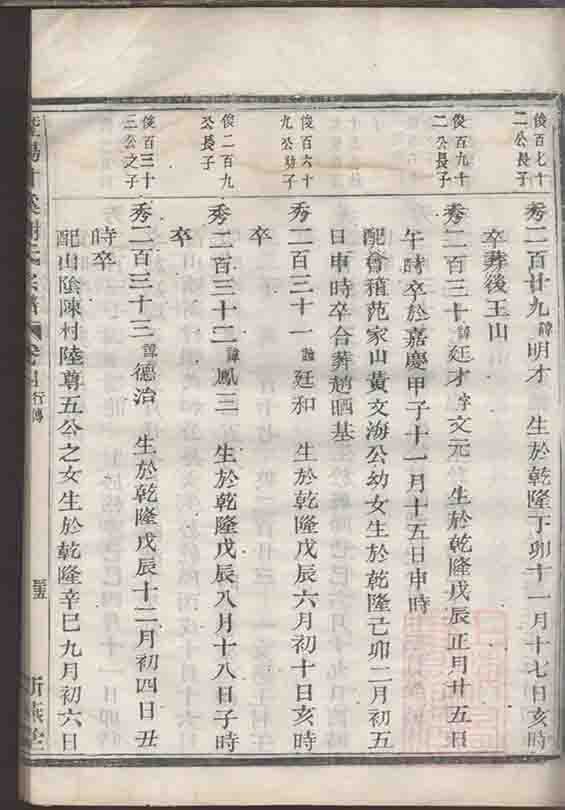 俊百七十
二公長子
秀二百廿九諱明才 生於乾隆丁卯十一月十七日亥時
卒葬後王山
俊百九十
二公長子
秀二百三十諱廷才字文元 生於乾隆戊辰正月廿五日
午時卒於嘉慶甲子十一月十五日申時
配會稽范家山黃文海公幼女生於乾隆己卯二月初五
日申時卒合葬趙晒基
俊百六十
九公幼子
秀二百三十一諱廷和 生於乾隆戊辰六月初十日亥時
卒
俊二百九
公長子
秀二百三十二諱鳳三 生於乾隆戊辰八月十八日子時
卒
俊百三十
三公之子
秀二百三十三諱德治 生於乾隆戊辰十二月初四日丑
時卒
配山陰陳村陸尊五公之女生於乾隆辛巳九月初六日
氏宗譜 行傳